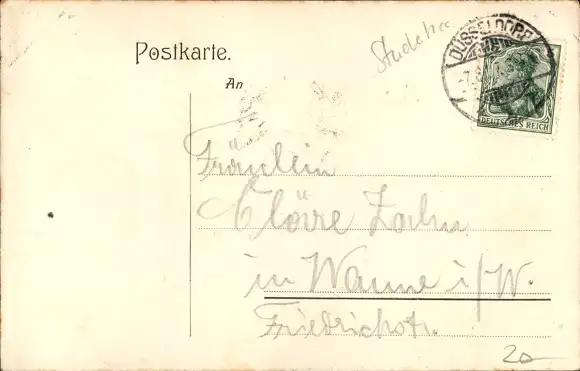 Postkarte.
An
DÜSSELDORF
DEUTSCHES REICH
Fräulein
Zahn
in Wanne i/W.
Friedrichstr.
20